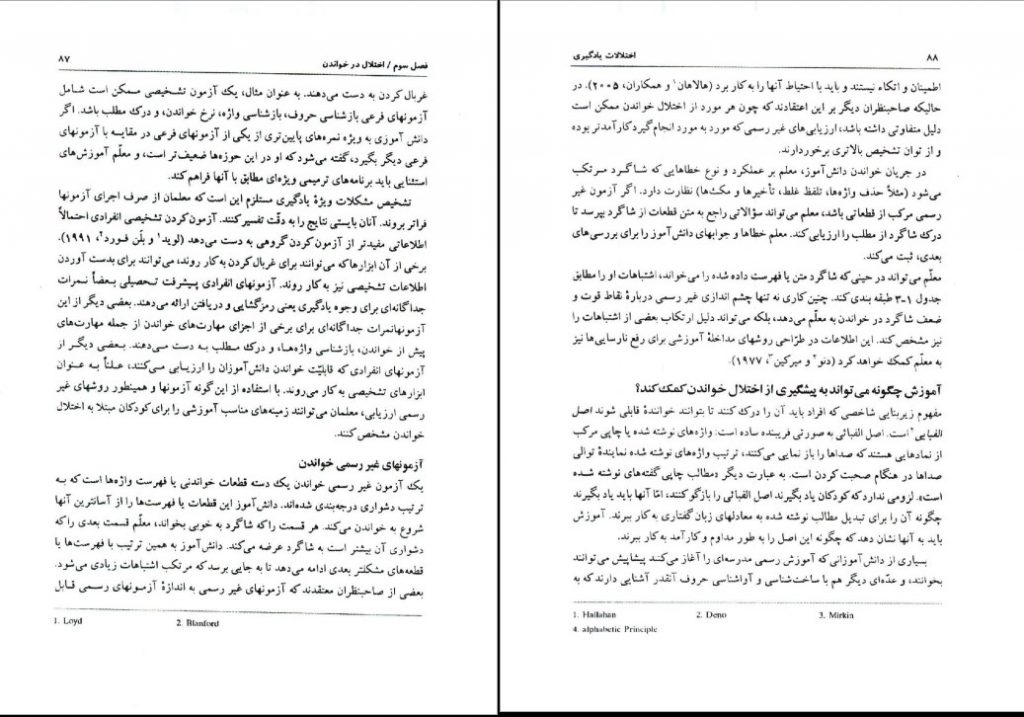 فصل سوم / اختلال در خواندن ۸۷
غربال کردن به دست می‌دهند. به عنوان مثال، یک آزمون تشخیصی ممکن است شامل
آزمونهای فرعی بازشناسی حروف، بازشناسی واژه، نرخ خواندن، و درک مطلب باشد. اگر
دانش آموزی به ویژه نمره‌های پایین‌تری از یکی از آزمونهای فرعی در مقایسه با آزمونهای
فرعی دیگر بگیرد، گفته می‌شود که او در این حوزه‌ها ضعیف‌تر است، و معلّم آموزش‌های
استثنایی باید برنامه‌های ترمیمی ویژه‌ای مطابق با آنها فراهم کند.
تشخیص مشکلات ویژهٔ یادگیری مستلزم این است که معلمان از صرف اجرای آزمونها
فراتر بروند. آنان بایستی نتایج را به دقّت تفسیر کنند. آزمون کردن تشخیصی انفرادی احتمالاً
اطلاعاتی مفیدتر از آزمون کردن گروهی به دست می‌دهد (لوید۱ و بلَن فورد۲، ۱۹۹۱).
برخی از آن ابزارها که می‌توانند برای غربال کردن به کار روند، می‌توانند برای بدست آوردن
اطلاعات تشخیصی نیز به کار روند. آزمونهای انفرادی پیشرفت تحصیلی بعضاً نمرات
جداگانه‌ای برای وجوه یادگیری یعنی رمزگشایی و دریافتن ارائه می‌دهند. بعضی دیگر از این
آزمونهانمرات جداگانه‌ای برای برخی از اجزای مهارت‌های خواندن از جمله مهارت‌های
پیش از خواندن، بازشناسی واژه‌ها، و درک مطلب به دست می‌دهند. بعضی دیگر از
آزمونهای انفرادی که قابلیّت خواندن دانش‌آموزان را ارزیابی می‌کنند، عملاً به عنوان
ابزارهای تشخیصی به کار می‌روند. با استفاده از این گونه آزمونها و همینطور روشهای غیر
رسمی ارزیابی، معلمان می‌توانند زمینه‌های مناسب آموزشی را برای کودکان مبتلا به اختلال
خواندن مشخص کنند.
آزمونهای غیر رسمی خواندن
یک آزمون غیر رسمی خواندن یک دسته قطعات خواندنی یا فهرست واژه‌ها است که به
ترتیب دشواری درجه‌بندی شده‌اند. دانش‌آموز این قطعات یا فهرست‌ها را از آسانترین آنها
شروع به خواندن می‌کند. هر قسمت را که شاگرد به خوبی بخواند، معلّم قسمت بعدی را که
دشواری آن بیشتر است به شاگرد عرضه می‌کند. دانش‌آموز به همین ترتیب با فهرست‌ها یا
قطعه‌های مشکلتر بعدی ادامه می‌دهد تا به جایی برسد که مرتکب اشتباهات زیادی می‌شود.
بعضی از صاحبنظران معتقدند که آزمونهای غیر رسمی به اندازهٔ آزمونهای رسمی قابل
1. Loyd 2. Blanford
۸۸ اختلالات یادگیری
اطمینان و اتکاء نیستند و باید با احتیاط آنها را به کار برد (هالاهان۱ و همکاران، ۲۰۰۵). در
حالیکه صاحبنظران دیگر بر این اعتقادند که چون هر مورد از اختلال خواندن ممکن است
دلیل متفاوتی داشته باشد، ارزیابی‌های غیر رسمی که مورد به مورد انجام گیرد کارآمدتر بوده
و از توان تشخیص بالاتری برخوردارند.
در جریان خواندن دانش‌آموز، معلم بر عملکرد و نوع خطاهایی که شاگرد مرتکب
می‌شود (مثلاً حذف واژه‌ها، تلفظ غلط، تأخیرها و مکث‌ها) نظارت دارد. اگر آزمون غیر
رسمی مرکب از قطعاتی باشد، معلم می‌تواند سؤالاتی راجع به متن قطعات از شاگرد بپرسد تا
درک شاگرد از مطلب را ارزیابی کند. معلم خطاها و جوابهای دانش‌آموز را برای بررسی‌های
بعدی، ثبت می‌کند.
معلّم می‌تواند در حینی که شاگرد متن یا فهرست داده شده را می‌خواند، اشتباهات او را مطابق
جدول ۱-۳ طبقه بندی کند. چنین کاری نه تنها چشم اندازی غیر رسمی دربارهٔ نقاط قوت و
ضعف شاگرد در خواندن به معلّم می‌دهد، بلکه می‌تواند دلیل ارتکاب بعضی از اشتباهات را
نیز مشخص کند. این اطلاعات در طرّاحی روشهای مداخلهٔ آموزشی برای رفع نارسایی‌ها نیز
به معلّم کمک خواهد کرد (دنو۲ و میرکین۳، ۱۹۷۷).
آموزش چگونه می‌تواند به پیشگیری از اختلال خواندن کمک کند؟
مفهوم زیربنایی شاخصی که افراد باید آن را درک کنند تا بتوانند خوانندهٔ قابلی شوند اصل
الفبایی۴ است. اصل الفبائی به صورتی فریبنده ساده است: واژه‌های نوشته شده یا چاپی مرکب
از نمادهایی هستند که صداها را باز نمایی می‌کنند، ترتیب واژه‌های نوشته شده نمایندهٔ توالی
صداها در هنگام صحبت کردن است. به عبارت دیگر «مطالب چاپی گفته‌های نوشته شده
است». لزومی ندارد که کودکان یاد بگیرند اصل الفبائی را بازگو کنند، امّا آنها باید یاد بگیرند
چگونه آن را برای تبدیل مطالب نوشته شده به معادلهای زبان گفتاری به کار ببرند. آموزش
باید به آنها نشان دهد که چگونه این اصل را به طور مداوم و کارآمد به کار ببرند.
بسیاری از دانش‌آموزانی که آموزش رسمی مدرسه‌ای را آغاز می‌کنند پیشاپیش می‌توانند
بخوانند، و عدّه‌ای دیگر هم با ساخت‌شناسی و آواشناسی حروف آنقدر آشنایی دارند که به
1. Hallahan 2. Deno 3. Mirkin
4. alphabetic Principle